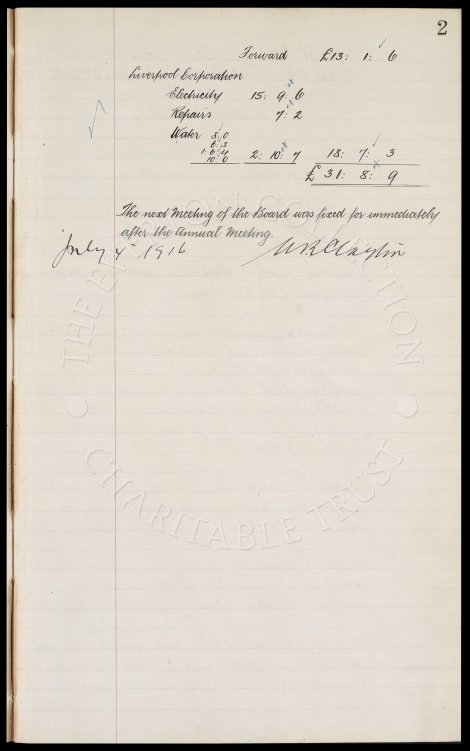 2
Forward £13: 1: 6
Liverpool Corporation
Electricity 15: 9: 6
Repairs 7: 2
Water 8: 0
6: 3
1: 6: 4
10: 0 2: 10: 7 18: 7: 3
£31: 8: 9
The next Meeting of the Board was fixed for immediately
after the Annual Meeting.
July 4th 1916 W R Clayton
THE EVERTON COLLECTION
CHARITABLE TRUST